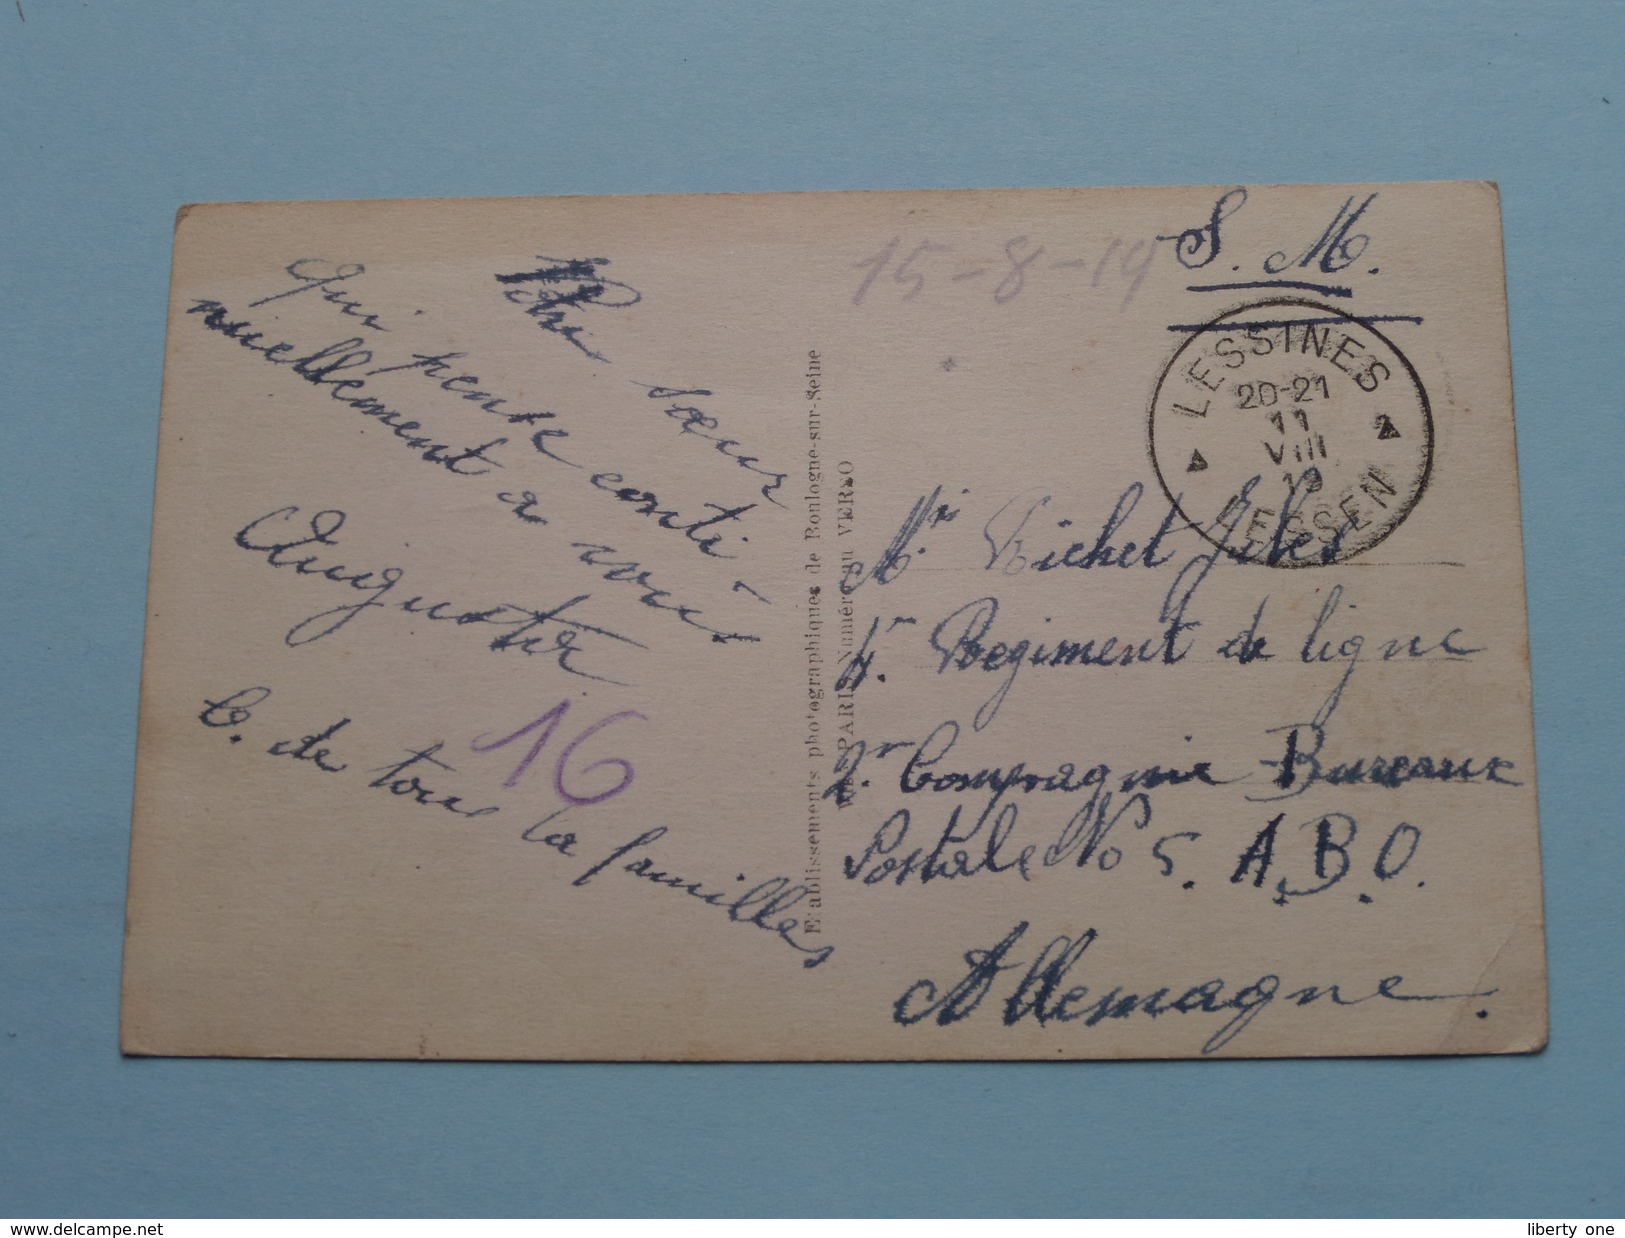 sœur
Qui pense conti-
nuellement a vous
Augusta
B. de tous la familles
16
Etablissements photographiques de Boulogne-sur-Seine
PARIS Numéro au VERSO
15-8-19
S. M.
LESSINES
20-21
11
VIII
19
LESSEN
Mr Richet Jules
4r Regiment de ligne
2r Compagnie Bureaux
Postale No 5. A.B.O.
Allemagne.
www.delcampe.net
liberty one